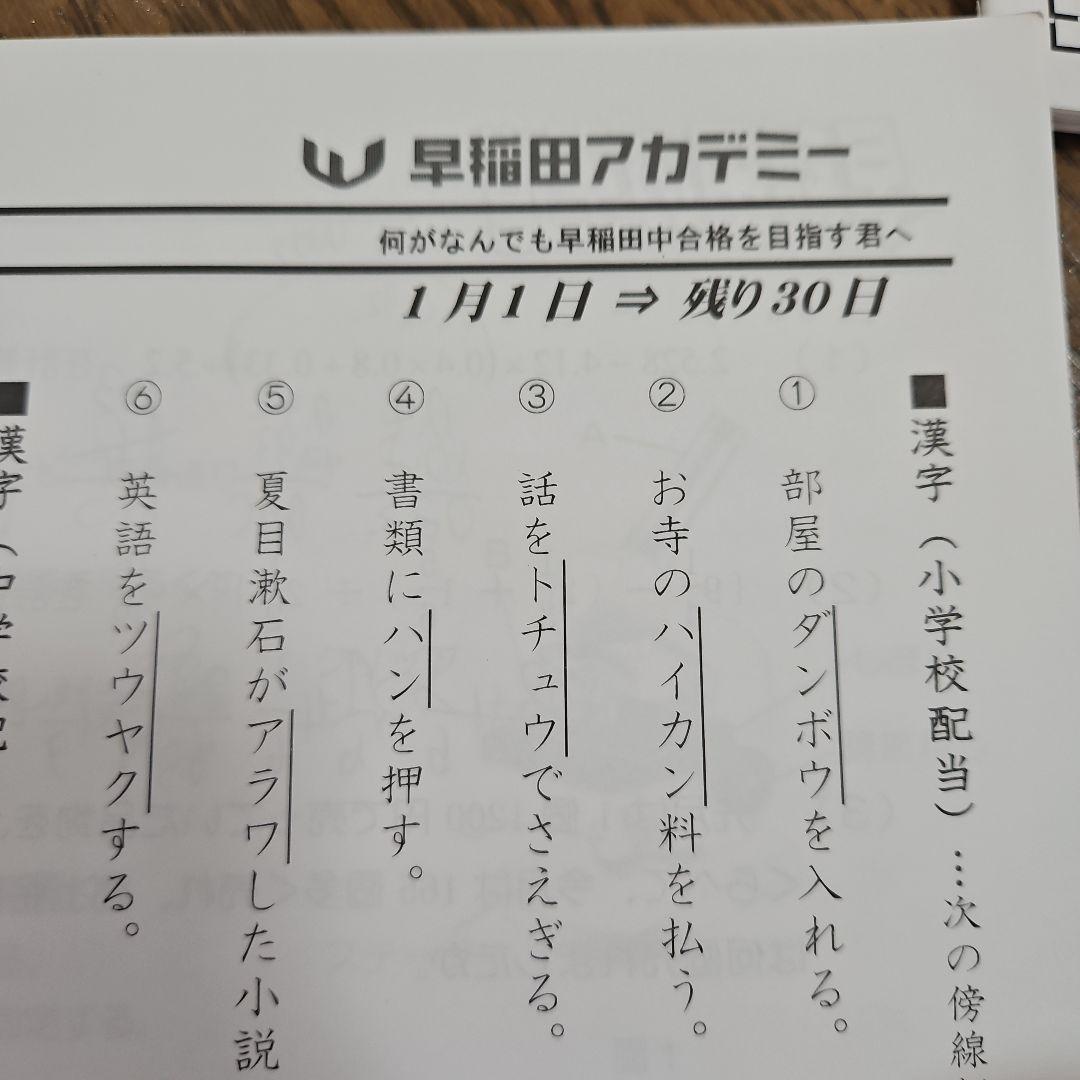 早稲田アカデミー
何がなんでも早稲田中合格を目指す君へ
1月1日 ⇒ 残り30日
■漢字（小学校配当）…次の傍線
① 部屋のダンボウを入れる。
② お寺のハイカン料を払う。
③ 話をトチュウでさえぎる。
④ 書類にハンを押す。
⑤ 夏目漱石がアラワした小説
⑥ 英語をツウヤクする。
■漢字（中学校配